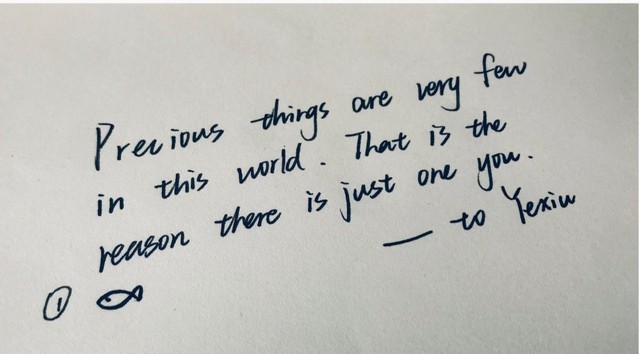 Precious things are very few
in this world. That is the
reason there is just one you.
— to Yexiu
①